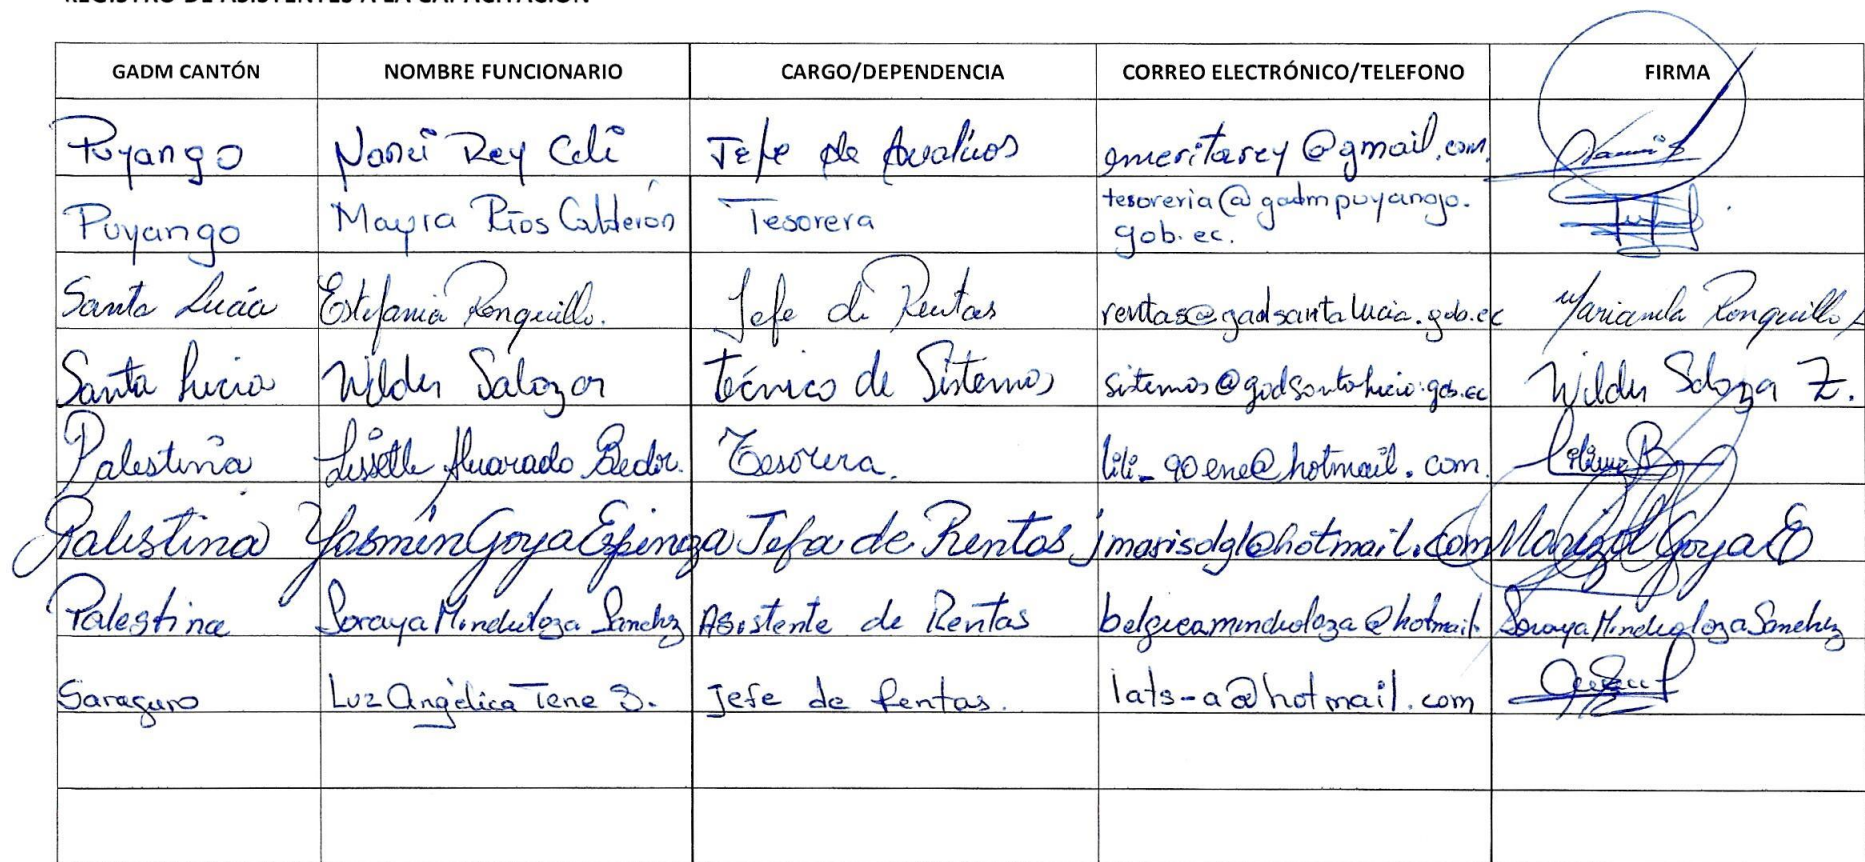 REGISTRO DE ASISTENTES A LA CAPACITACIÓN
GADM CANTÓN NOMBRE FUNCIONARIO CARGO/DEPENDENCIA CORREO ELECTRÓNICO/TELEFONO FIRMA
Puyango Nanci Rey Celi Jefe de Avalúos emeritarey@gmail.com.
Puyango Mayra Ríos Calderón Tesorera tesoreria@gadmpuyango.
gob.ec.
Santa Lucía Estefania Ronquillo. Jefe de Rentas rentas@gadsantalucia.gob.ec Marianela Ronquillo
Santa Lucia Wilder Salazar Técnico de Sistemas sistemas@gadsantalucia.gob.ec Wilder Salazar Z.
Palestina Lissette Alvarado Tesorera. lili_90ene@hotmail.com.
Palestina Yasmin Goya Espinoza Jefa de Rentas jmarisolgl@hotmail.com Marizol Goya E
Palestina Soraya Mindiolaza Sanchez Asistente de Rentas belgicamindiolaza@hotmail. Soraya Mindiolaza Sanchez
Saraguro Luz Angélica Tene S. Jefe de Rentas. lats-a@hotmail.com